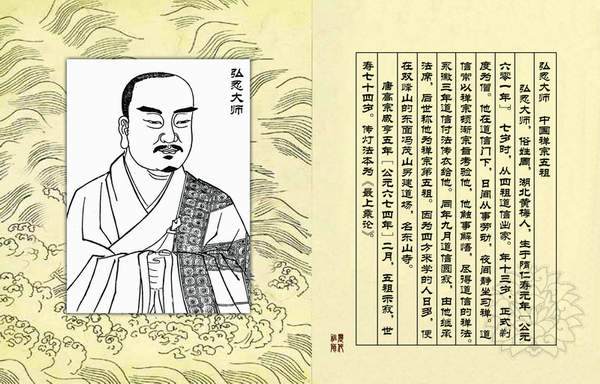 弘忍大师
弘忍大师　中国禅宗五祖
弘忍大师，俗姓周，湖北黄梅人，生于隋仁寿元年〔公元
六零一年〕七岁时，从四祖道信出家。年十三岁，正式剃
度为僧。他在道信门下，日间从事劳动，夜间静坐习禅。道
信常以禅宗顿渐宗旨考验他，他触事解悟，尽得道信的禅法。
永徽三年道信付法传衣给他。同年九月道信圆寂，由他继承
法席，后世称他为禅宗第五祖。因为四方来学的人日多，便
在双峰山的东面冯茂山另建道场，名东山寺。
唐高宗咸亨五年〔公元六七四年〕二月，五祖示寂，世
寿七十四岁。传灯法本为《最上乘论》。